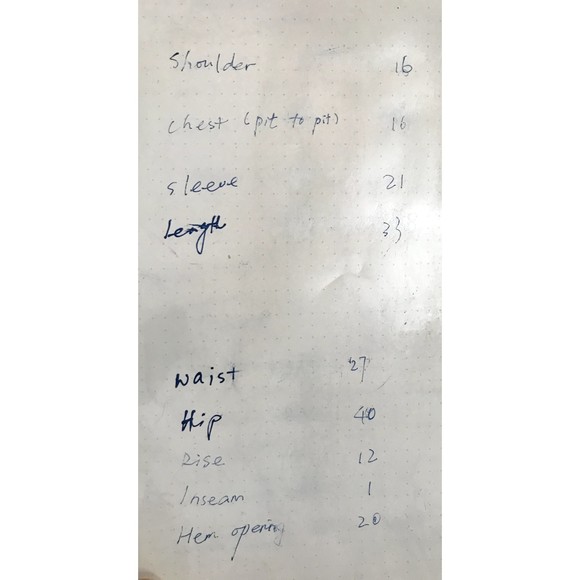 Shoulder 16
Chest (pit to pit) 16
Sleeve 21
Length 33
Waist 27
Hip 40
Rise 12
Inseam 1
Hem opening 20